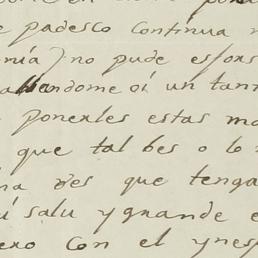 e padesco Continua
nía) no pude esfors
allandome oí un tan
ponerles estas ma
que tal bes o lo
na bes que tenga
ú salu y grande e
ero con el ynesp